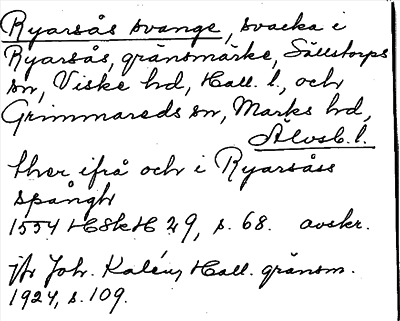 Ryarsås svange, svacka i
Ryarsås, gränsmärke, Sällstorps
sn, Viske hd, Hall. l., och
Grimmareds sn, Marks hd,
Älvsb. l.
ther ifrå och i Ryarsåss
spångh
1554 HSkH 29, s. 68. avskr.
jfr Joh. Kalén, Hall. gränsm.
1924, s. 109.